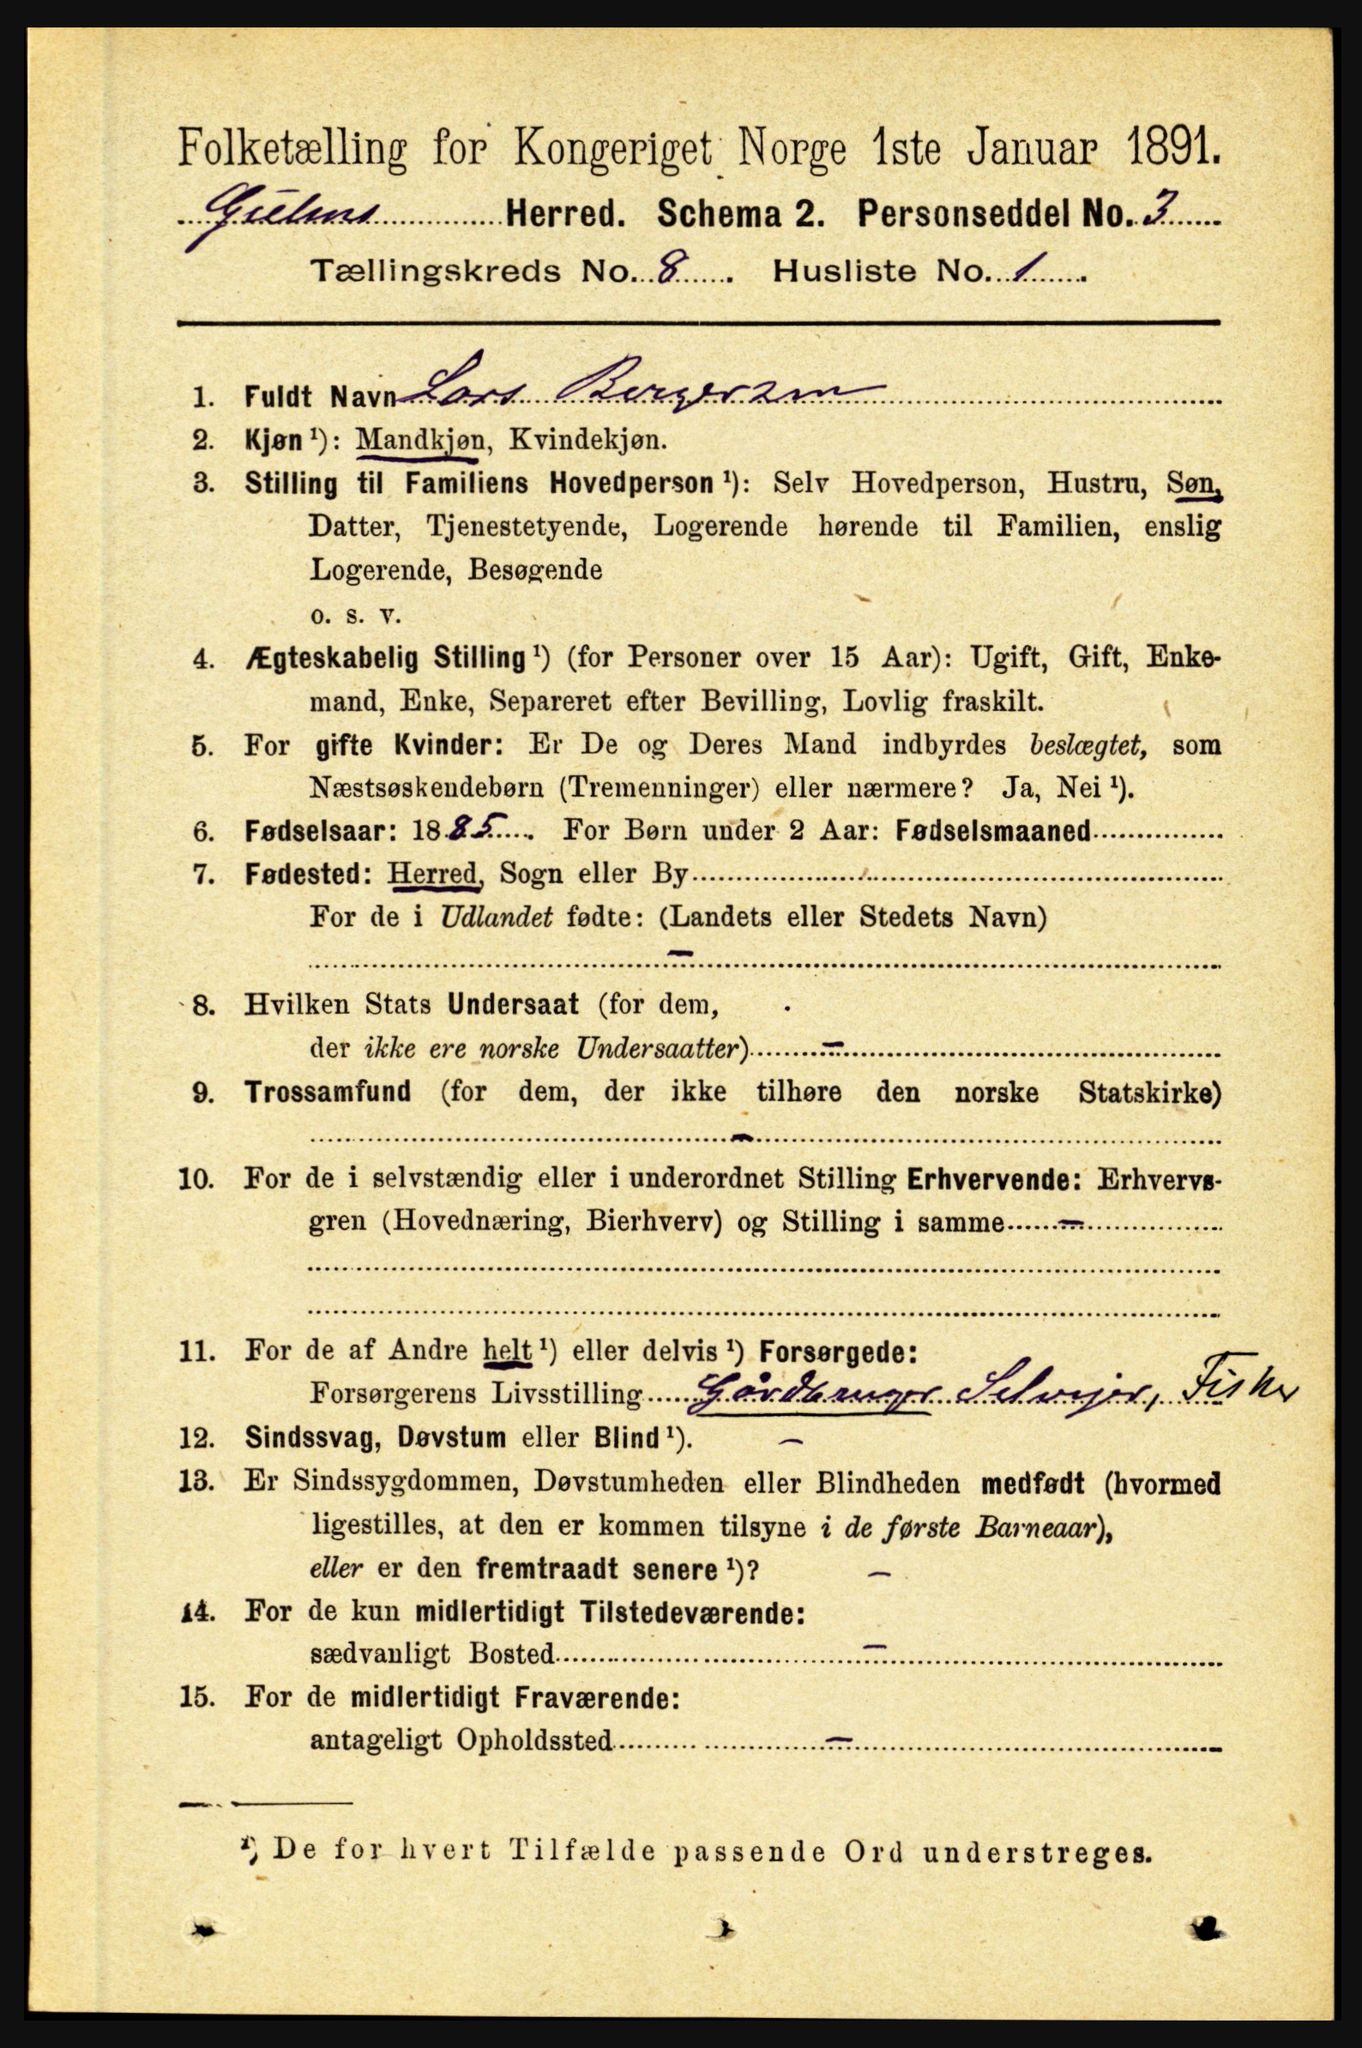 Folketælling for Kongeriget Norge 1ste Januar 1891.
Gulens Herred. Schema 2. Personseddel No. 3
Tællingskreds No. 8. Husliste No. 1.
1. Fuldt Navn Lars Bergersen
2. Kjøn ¹): Mandkjøn, Kvindekjøn.
3. Stilling til Familiens Hovedperson ¹): Selv Hovedperson, Hustru, Søn,
Datter, Tjenestetyende, Logerende hørende til Familien, enslig
Logerende, Besøgende
o. s. v.
4. Ægteskabelig Stilling ¹) (for Personer over 15 Aar): Ugift, Gift, Enke-
mand, Enke, Separeret efter Bevilling, Lovlig fraskilt.
5. For gifte Kvinder: Er De og Deres Mand indbyrdes beslægtet, som
Næstsøskendebørn (Tremenninger) eller nærmere? Ja, Nei ¹).
6. Fødselsaar: 1885. For Børn under 2 Aar: Fødselsmaaned
7. Fødested: Herred, Sogn eller By
For de i Udlandet fødte: (Landets eller Stedets Navn)
–
8. Hvilken Stats Undersaat (for dem,
der ikke ere norske Undersaatter) –
9. Trossamfund (for dem, der ikke tilhøre den norske Statskirke)
–
10. For de i selvstændig eller i underordnet Stilling Erhvervende: Erhvervs-
gren (Hovednæring, Bierhverv) og Stilling i samme –
11. For de af Andre helt ¹) eller delvis ¹) Forsørgede:
Forsørgerens Livsstilling Gårdbruger Selvejer, Fisker
12. Sindssvag, Døvstum eller Blind ¹). –
13. Er Sindssygdommen, Døvstumheden eller Blindheden medfødt (hvormed
ligestilles, at den er kommen tilsyne i de første Barneaar),
eller er den fremtraadt senere ¹)? –
14. For de kun midlertidigt Tilstedeværende:
sædvanligt Bosted –
15. For de midlertidigt Fraværende:
antageligt Opholdssted –
¹) De for hvert Tilfælde passende Ord understreges.